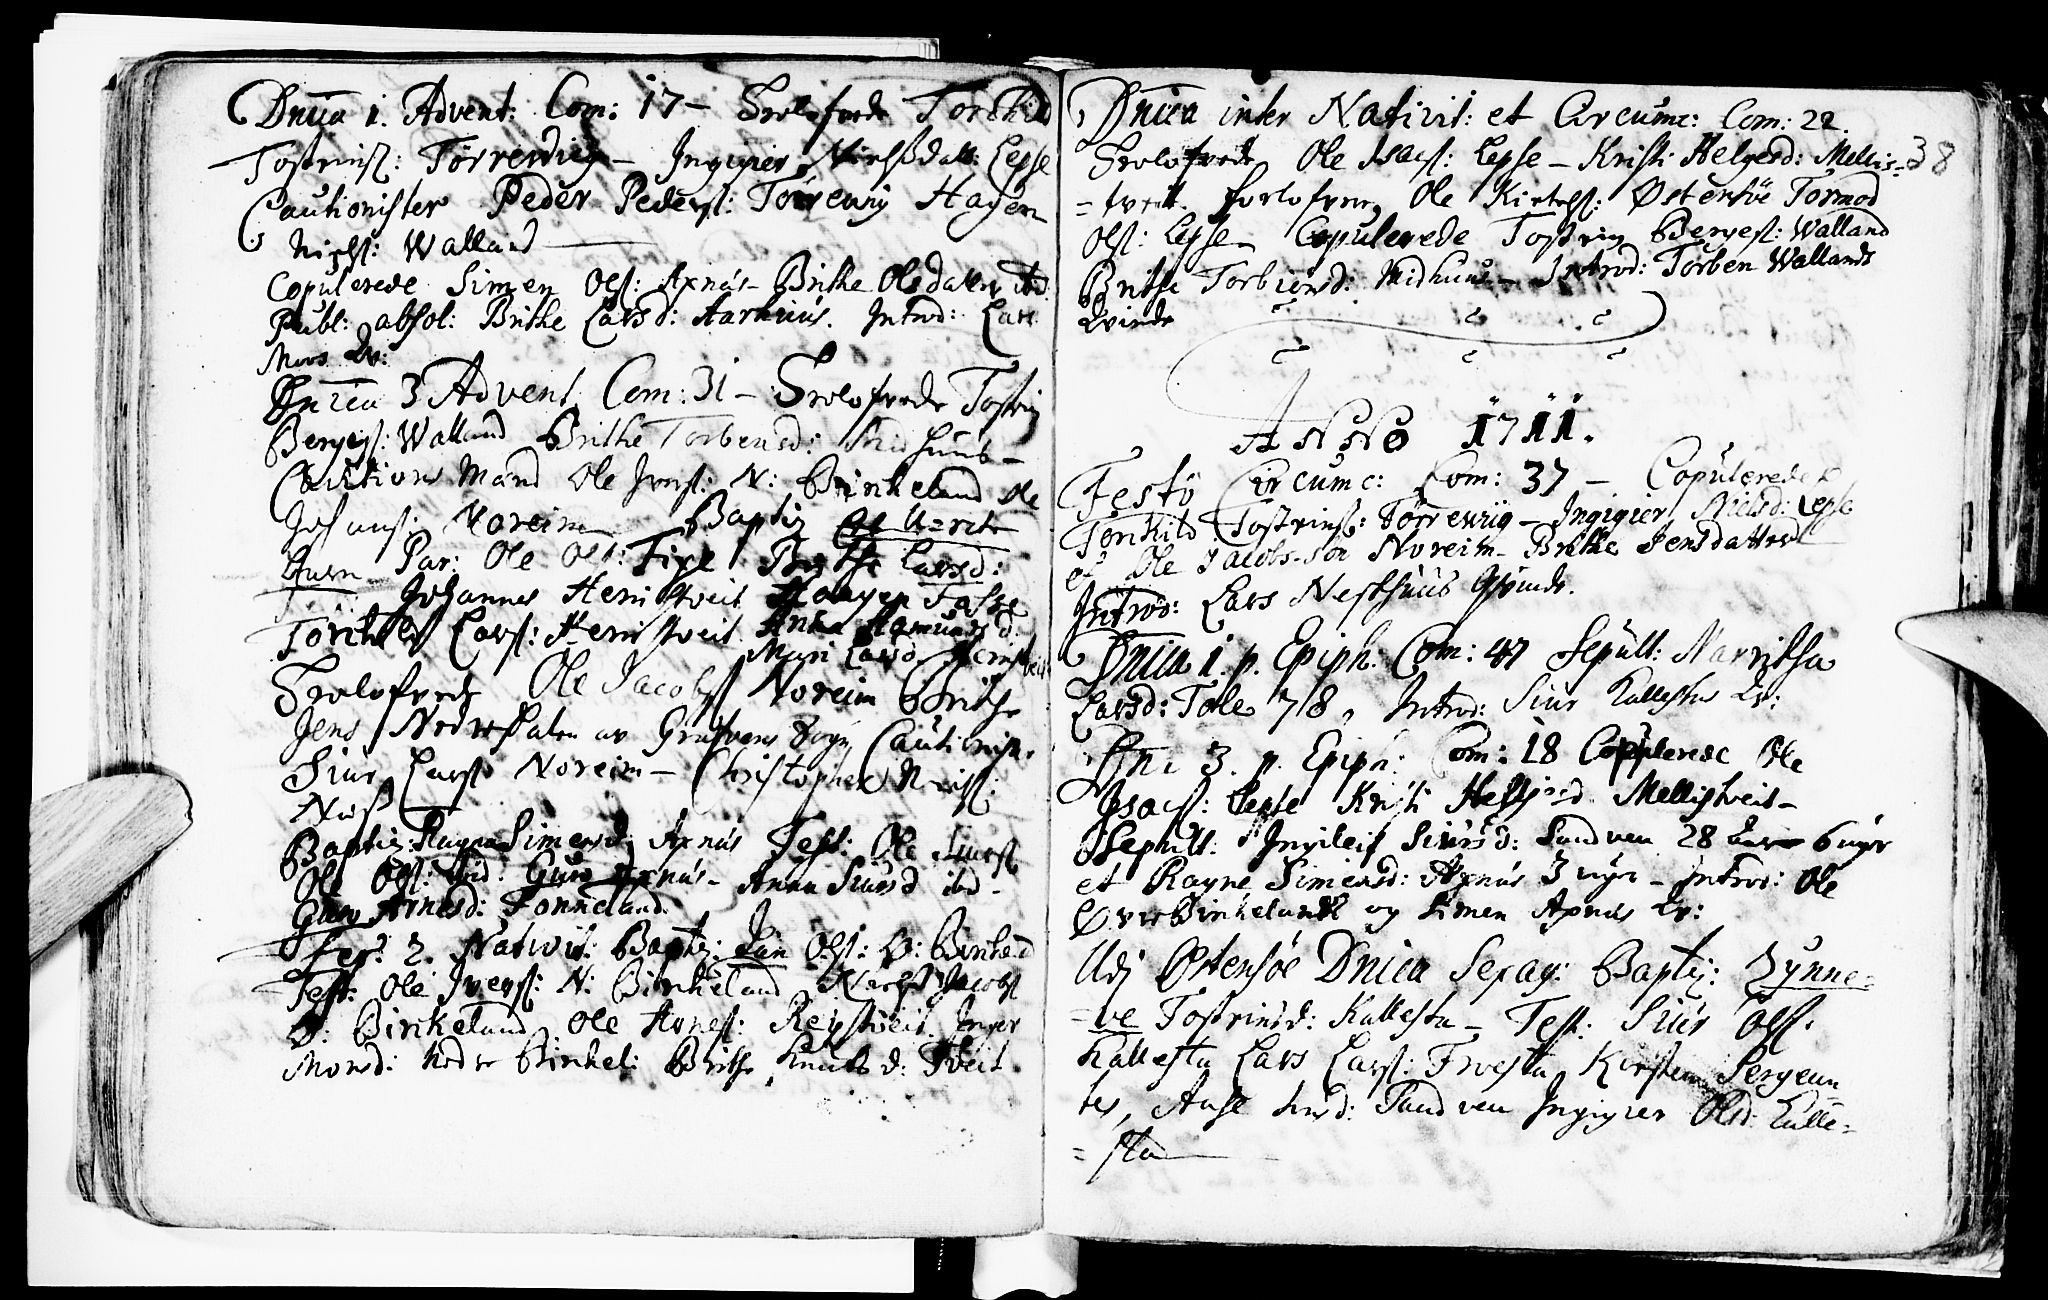 Dnica 1. Advent: Com: 17 – Trolofvede Torkild
Tosteins: Tørrevig – Ingigier Nielsdatt: Lepse
Cautionister Peder Peders: Tørrevig Hagen
Niels: Walland
Copulerede Simen Ols: Axnes – Brithe Olsdatter ibd:
Publ: absol: Brithe Larsd: Aarhuus. Introd: Lars
Moes Qv:
Dnica 3 Advent Com: 31 – Trolofvede Tostein
Berges: Walland Brithe Torbensd: Midhuus –
Cautions Mænd Ole Ivers: N: Birkeland Ole
Johans: Noreim Baptiz
Par: Ole Ols: Brithe Larsd:
Johannes Hernstveit Haagen
Torkild Lars: Hernstveit Anna Aamundsd:
Mari Larsd Hernstveit
Trolofvede Ole Jacobs Noreim Brithe
Jens Nedre av Gravens Sogn Cautionister
Siur Lars: Noreim – Christopher Niels:
Næs
Baptiz: Ragna Simensd: Axnes Test: Ole Siurs
Ole Ols: ibid. Guro Axnes – Anna Siursd ibd –
Guro Arnesd: Fonneland.
Fer: 2. Nativit: Baptiz: Jan Ols: Ø: Birkeland
Test: Ole Ivers: N: Birkeland Niels Jacobs
Ø: Birkeland Ole Aones: Reystveit. Inger
Monsd: Nedre Birkel: Brithe Knuds d: Tveit.
Dnica inter Nativit: et Circumc: Com: 22.
38
Trolofvede Ole Isacs: Lepse – Kristi Helgesd: Mellis-
=tveit. forlofvere Ole Østensøe Tormod
Ols: Lepse – Copulerede Tostein Berges: Walland
Brithe Torbiensd: Midhuus – Introd: Torben Wallands
Qvinde
ANNO 1711.
Festo Circumc: Com: 37 – Copulerede
Torkild Tosteins: Tørrevig – Ingigier Nielsd: Lepse
et Ole Jacobs-søn Noreim – Brithe Jensdatter
Introd: Lars Neshuus Qvinde.
Dnica 1. p. Epiph: Com: 47 Sepult: Marritha
Larsd: Tole 78, Introd: Siur Kallestas Qv:
Dni 3. p. Epiph: Com: 18 Copulerede Ole
Isacs: Lepse Kristi Helgesd Mellistveit –
Sepult: Ingileif Siursd: Sandven 28 6 uger
et Ragne Simensd: Axnes 3 uger – Introd: Ole
Øvre Birkelands og Simen Axnes Qv:
Udi Østensøe Dnica Sexag: Baptiz: Zynne-
=ve Tosteinsd: Kallesta – Test: Siur Ols:
Kallesta Lars Lars: Froesta Kirsten Sergean
tes, Anse Sandven Ingigier Olsd: Kalle-
=sta